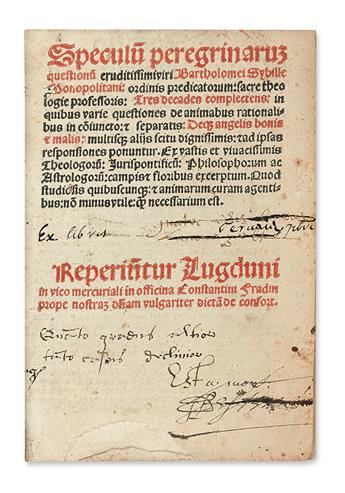 Speculũ peregrinaruȝ
questionũ eruditissimi viri Bartholomei Sybille
Monopolitani: ordinis predicatorum: sacre theo
logie professoris: Tres decades complectens: in
quibus varie questiones de animabus rationali-
bus in cõiuncto: ⁊ separatis: Deqȝ angelis bonis
⁊ malis: multisqȝ aliis scitu dignissimis: ⁊ ad ipsas
responsiones ponuntur. Ex vastis et viuacissimis
Theologorũ: Jurispontificũ: Philosophorum ac
Astrologorũ: campis ⁊ floribus excerptum. Quod
studiosis quibuscunqȝ: ⁊ animarum curam agenti-
bus: nõ minus vtile: qȝ necessarium est.
Ex
Reperiũtur Lugduni
in vico mercuriali in officina Constantini Fradin
prope nostraȝ dñam vulgariter dictã de confort.